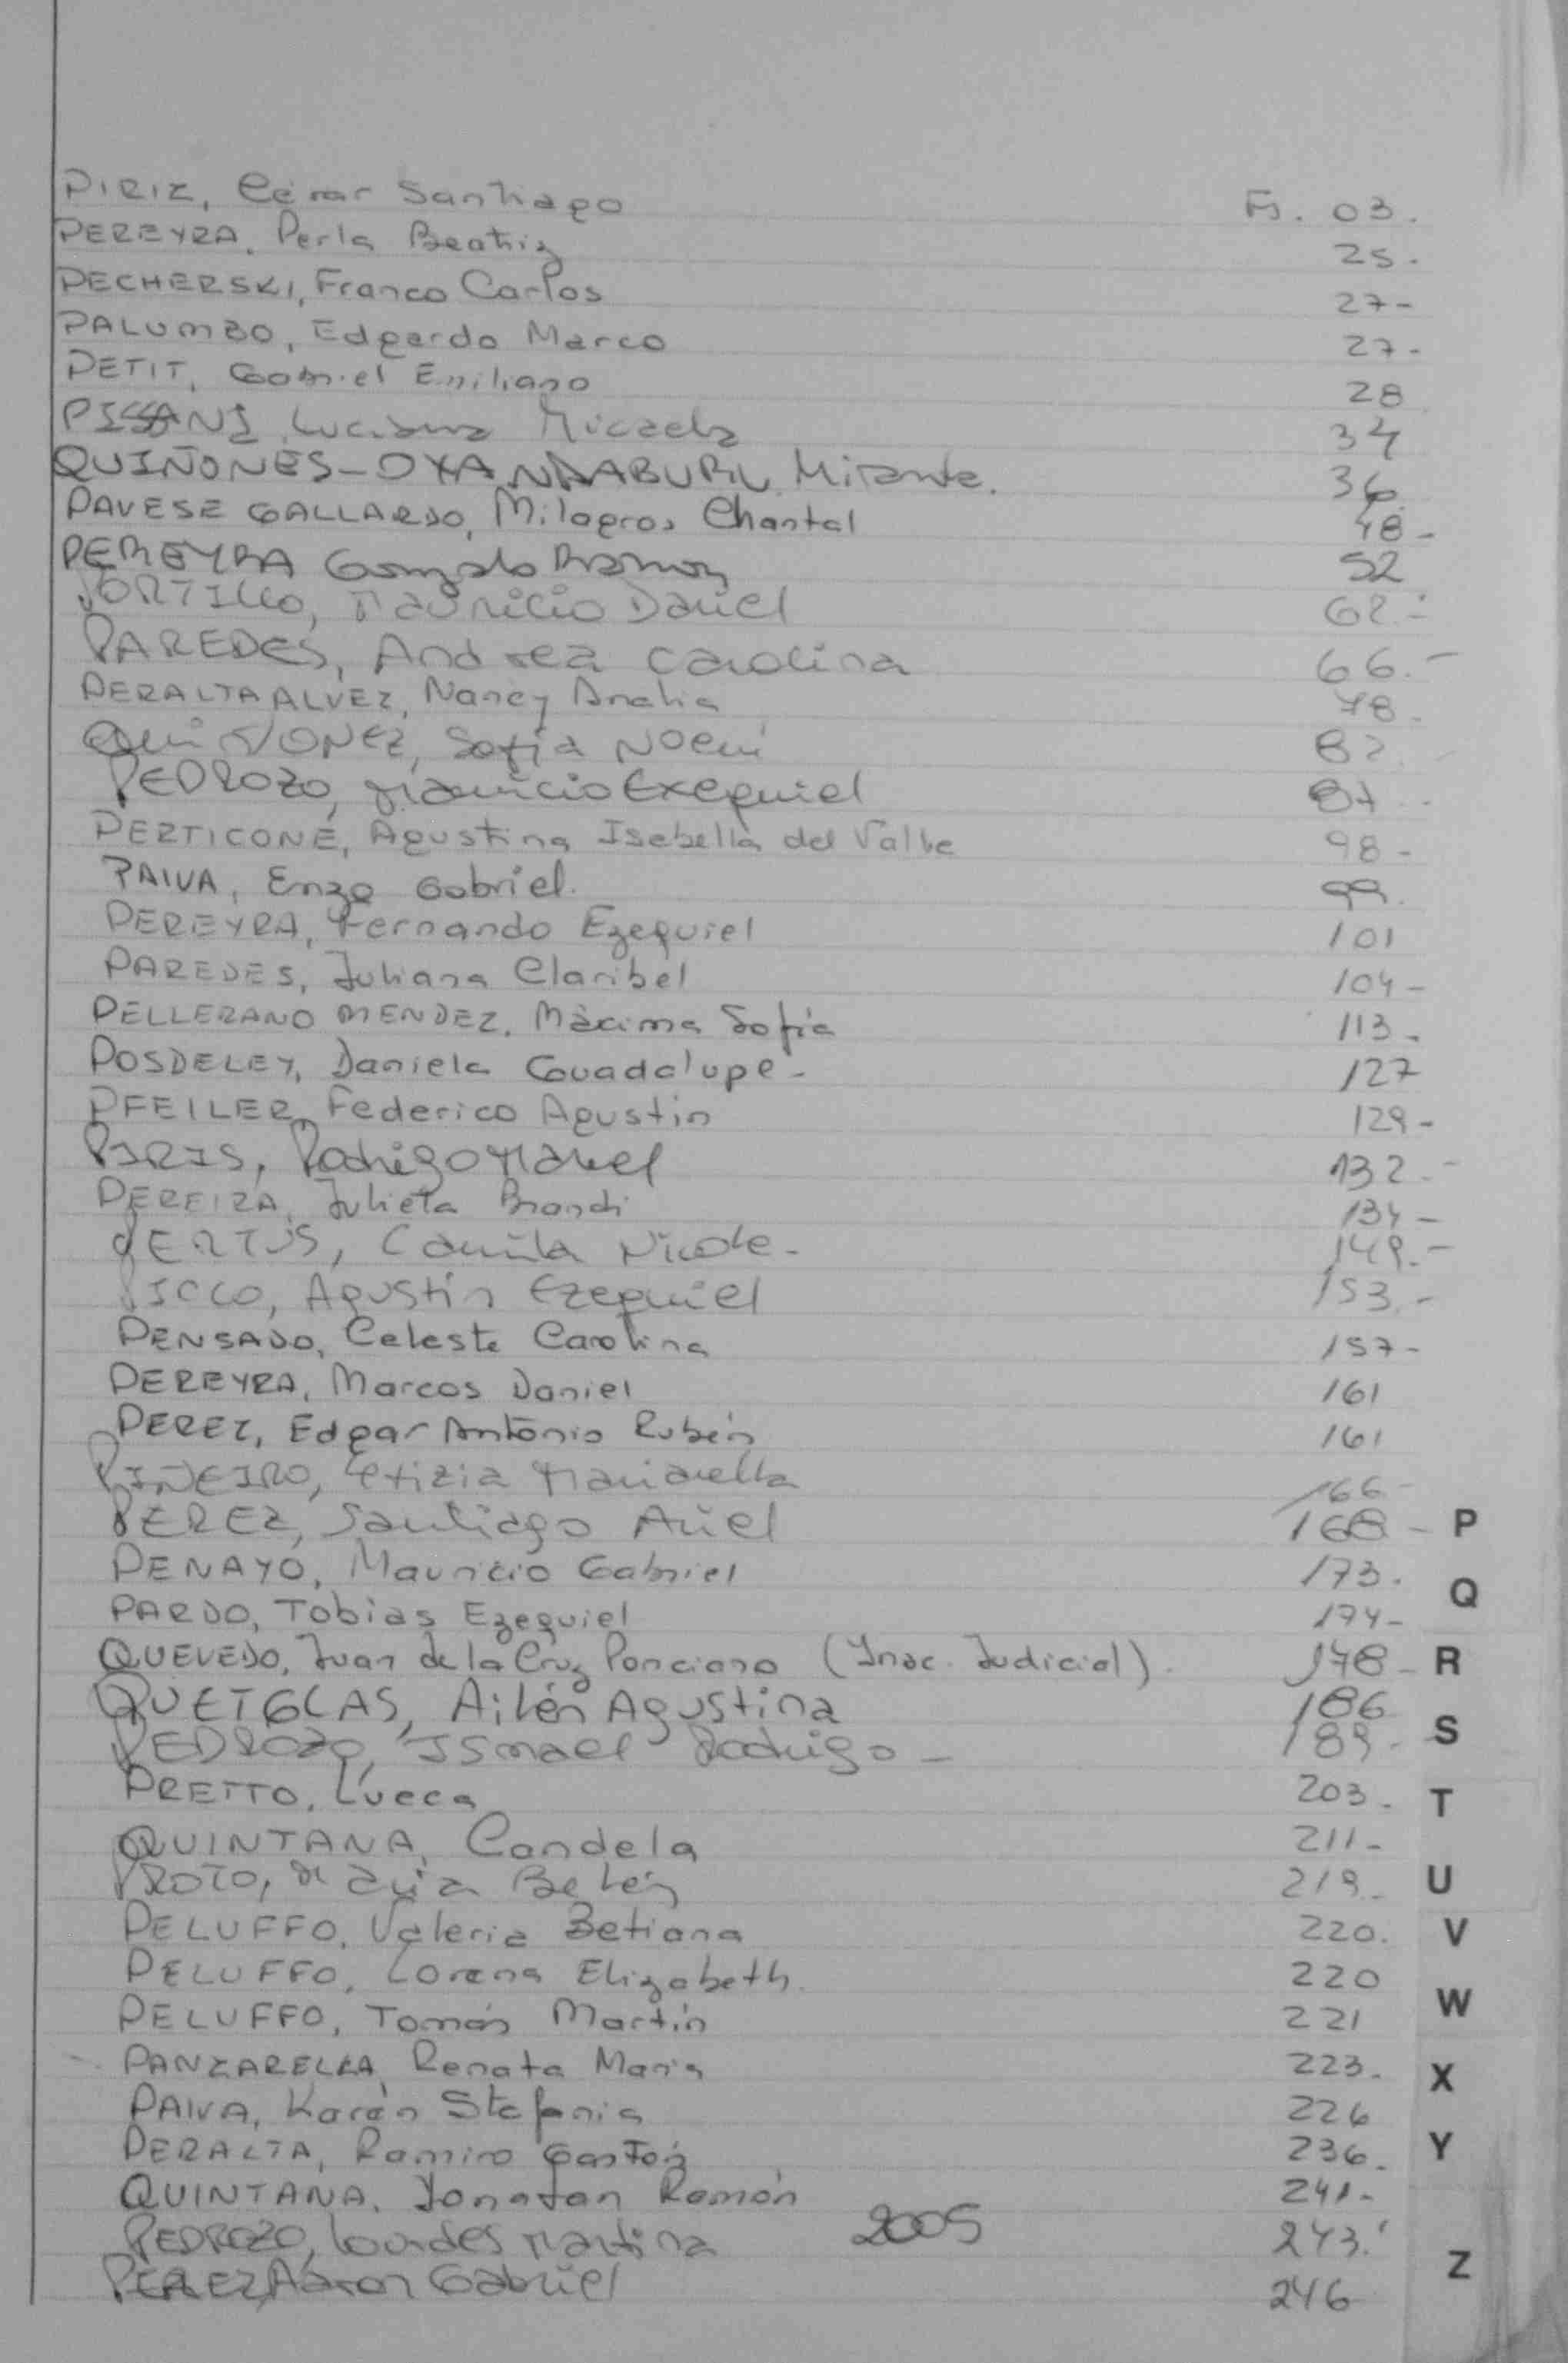 PIRIZ, César Santiago Fs. 03.
PEREYRA, Perla Beatriz 25.
PECHERSKI, Franco Carlos 27-
PALUMBO, Edgardo Marco 27-
PETIT, Gabriel Emiliano 28
PISSANI, Luciana Micaela 34
QUIÑONES- Mirante. 36
PAVESE GALLARDO, Milagros Chantal 48-
PEREYRA Gonzalo Ramon 52
PORTILLO, Mauricio Daniel 62.-
PAREDES, Andrea Carolina 66.-
PERALTA ALVEZ, Nancy Analia 78.
QUIÑONEZ, Sofía Noemí 82.
PEDROZO, Mauricio Exequiel 87
PERTICONE, Agustina Isabella del Valle 98-
PAIVA, Enzo Gabriel. 99.
PEREYRA, Fernando Ezequiel 101
PAREDES, Juliana Claribel 104-
PELLERANO MENDEZ, Máxima Sofía 113-
POSDELEY, Daniela Guadalupe- 127
PFEILER, Federico Agustín 129-
PIRIS, Rodrigo Manuel 132.-
PEREIRA, Julieta Brandi 134-
PERTUS, Camila Nicole- 149.-
PICCO, Agustín Ezequiel 153.-
PENSADO, Celeste Carolina 157-
PEREYRA, Marcos Daniel 161
PEREZ, Edgar Antonio Rubén 161
PIÑEIRO, Letizia Marianella 166-
PEREZ, Santiago Ariel 168- P
PENAYO, Mauricio Gabriel 173.
Q
PARDO, Tobias Ezequiel 174-
QUEVEDO, Juan de la Cruz Ponciano (Insc. Judicial). 178- R
QUETGLAS, Ailén Agustina 186
S
PEDROZO, Ismael Rodrigo- 189-
PRETTO, Lucca 203. T
QUINTANA, Candela 211-
PROTO, María Belén 219- U
PELUFFO, Valeria Betiana 220. V
PELUFFO, Lorena Elizabeth. 220
W
PELUFFO, Tomás Martín 221
PANZARELLA, Renata María 223. X
PAIVA, Karen Stefania 226
PERALTA, Ramiro Gastón 236. Y
QUINTANA, Jonatan Ramón 241-
PEDROZO, Lourdes Martina 2005 243.
Z
PEREZ, Aaron Gabriel 246